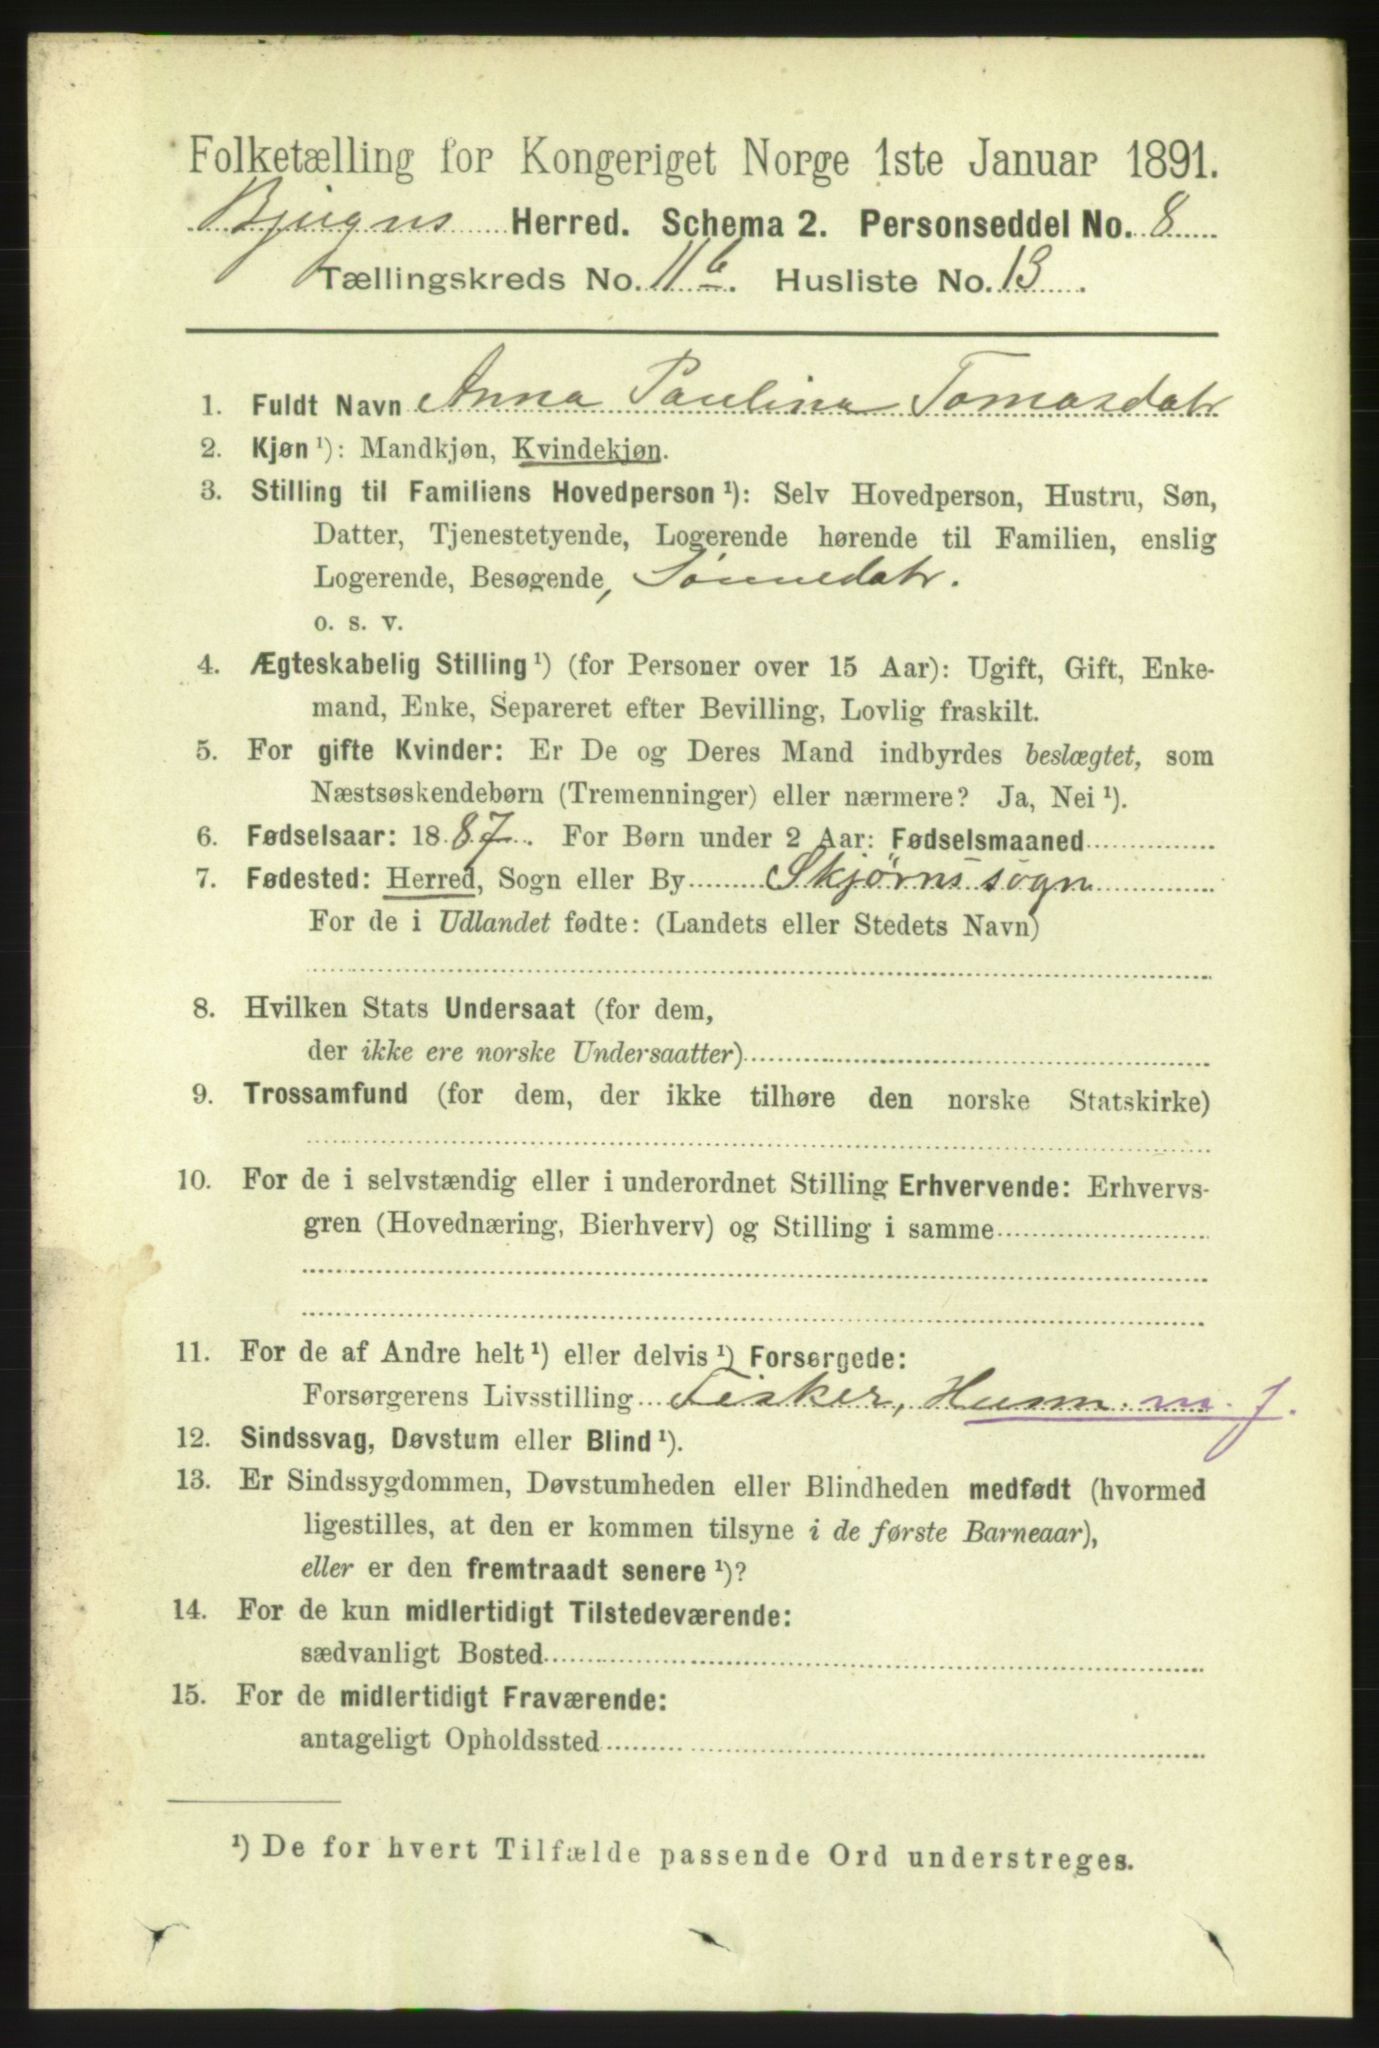 Folketælling for Kongeriget Norge 1ste Januar 1891.
Bjugns Herred. Schema 2. Personseddel No. 8
Tællingskreds No. 11 b. Husliste No. 13
1. Fuldt Navn Anna Paulina Tomasdatr
2. Kjøn ¹): Mandkjøn, Kvindekjøn.
3. Stilling til Familiens Hovedperson ¹): Selv Hovedperson, Hustru, Søn,
Datter, Tjenestetyende, Logerende hørende til Familien, enslig
Logerende, Besøgende, Sønnedatr.
o. s. v.
4. Ægteskabelig Stilling ¹) (for Personer over 15 Aar): Ugift, Gift, Enke-
mand, Enke, Separeret efter Bevilling, Lovlig fraskilt.
5. For gifte Kvinder: Er De og Deres Mand indbyrdes beslægtet, som
Næstsøskendebørn (Tremenninger) eller nærmere? Ja, Nei ¹).
6. Fødselsaar: 1887. For Børn under 2 Aar: Fødselsmaaned
7. Fødested: Herred, Sogn eller By Skjørns sogn
For de i Udlandet fødte: (Landets eller Stedets Navn)
8. Hvilken Stats Undersaat (for dem,
der ikke ere norske Undersaatter)
9. Trossamfund (for dem, der ikke tilhøre den norske Statskirke)
10. For de i selvstændig eller i underordnet Stilling Erhvervende: Erhvervs-
gren (Hovednæring, Bierhverv) og Stilling i samme
11. For de af Andre helt ¹) eller delvis ¹) Forsørgede:
Forsørgerens Livsstilling Fisker, Husm. m. j.
12. Sindssvag, Døvstum eller Blind ¹).
13. Er Sindssygdommen, Døvstumheden eller Blindheden medfødt (hvormed
ligestilles, at den er kommen tilsyne i de første Barneaar),
eller er den fremtraadt senere ¹)?
14. For de kun midlertidigt Tilstedeværende:
sædvanligt Bosted
15. For de midlertidigt Fraværende:
antageligt Opholdssted
¹) De for hvert Tilfælde passende Ord understreges.